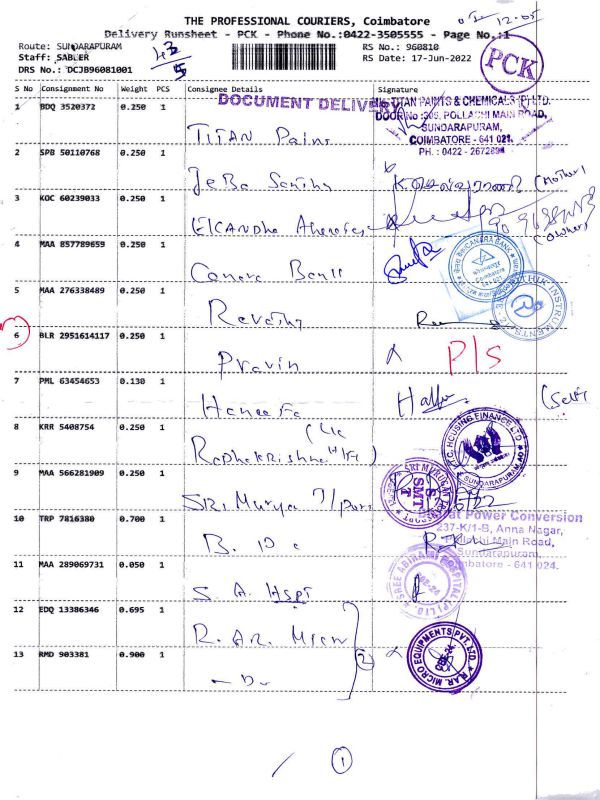 THE PROFESSIONAL COURIERS, Coimbatore
12.05
Delivery Runsheet - PCK - Phone No.:0422-3505555 - Page No.:1
Route: SUNDARAPURAM
RS No.: 960810
Staff: SABEER
RS Date: 17-Jun-2022
DRS No.: DCJB96081001
PCK
S No Consignment No Weight PCS Consignee Details Signature
DOCUMENT DELIVERY
1 BDQ 3520372 0.250 1
TITAN PAINTS & CHEMICALS (P) LTD.
DOOR No :306, POLLACHI MAIN ROAD,
SUNDARAPURAM,
COIMBATORE - 641 021.
PH. : 0422 - 2672894
TITAN Pains
2 SPB 50110768 0.250 1
(Mother)
3 KOC 60239033 0.250 1
(owner)
4 MAA 857789659 0.250 1
Canara Bank
CANARA BANK
5 MAA 276338489 0.250 1
Revathy
6 BLR 2951614117 0.250 1
Pravin
P/S
7 PML 63454653 0.130 1
Haneefa
(Self)
8 KRR 5408754 0.250 1
(LIC
Radhakrishna Hfl)
HOUSING FINANCE LTD
SUNDARAPURAM
9 MAA 566281909 0.250 1
SRI. Murga
SRI MURUGAN
SMT
10 TRP 7816380 0.700 1
Power Conversion
237-K/1-B, Anna Nagar,
Pollachi Main Road,
Sundarapuram,
Coimbatore - 641 024.
11 MAA 289069731 0.050 1
S. A. Hspt
SREE ABIRAMI HOSPITAL (P) LTD.
CBE-24
12 EDQ 13386346 0.695 1
R. AR. Micro
13 RMD 903381 0.900 1
- Do
2
R.AR. MICRO EQUIPMENTS PVT LTD.
CBE-24
1